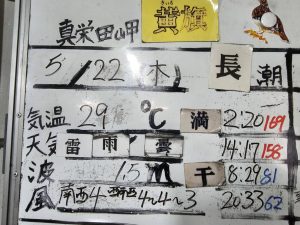 真栄田岬
きいろ
黄旗
5/22(木) 長潮
気温 29 ℃ 満 2:20 169
天気 雷雨曇 14:17 158
波 1.5 m 干 8:29 81
風 南西4 西南西4〜4〜3 20:33 62